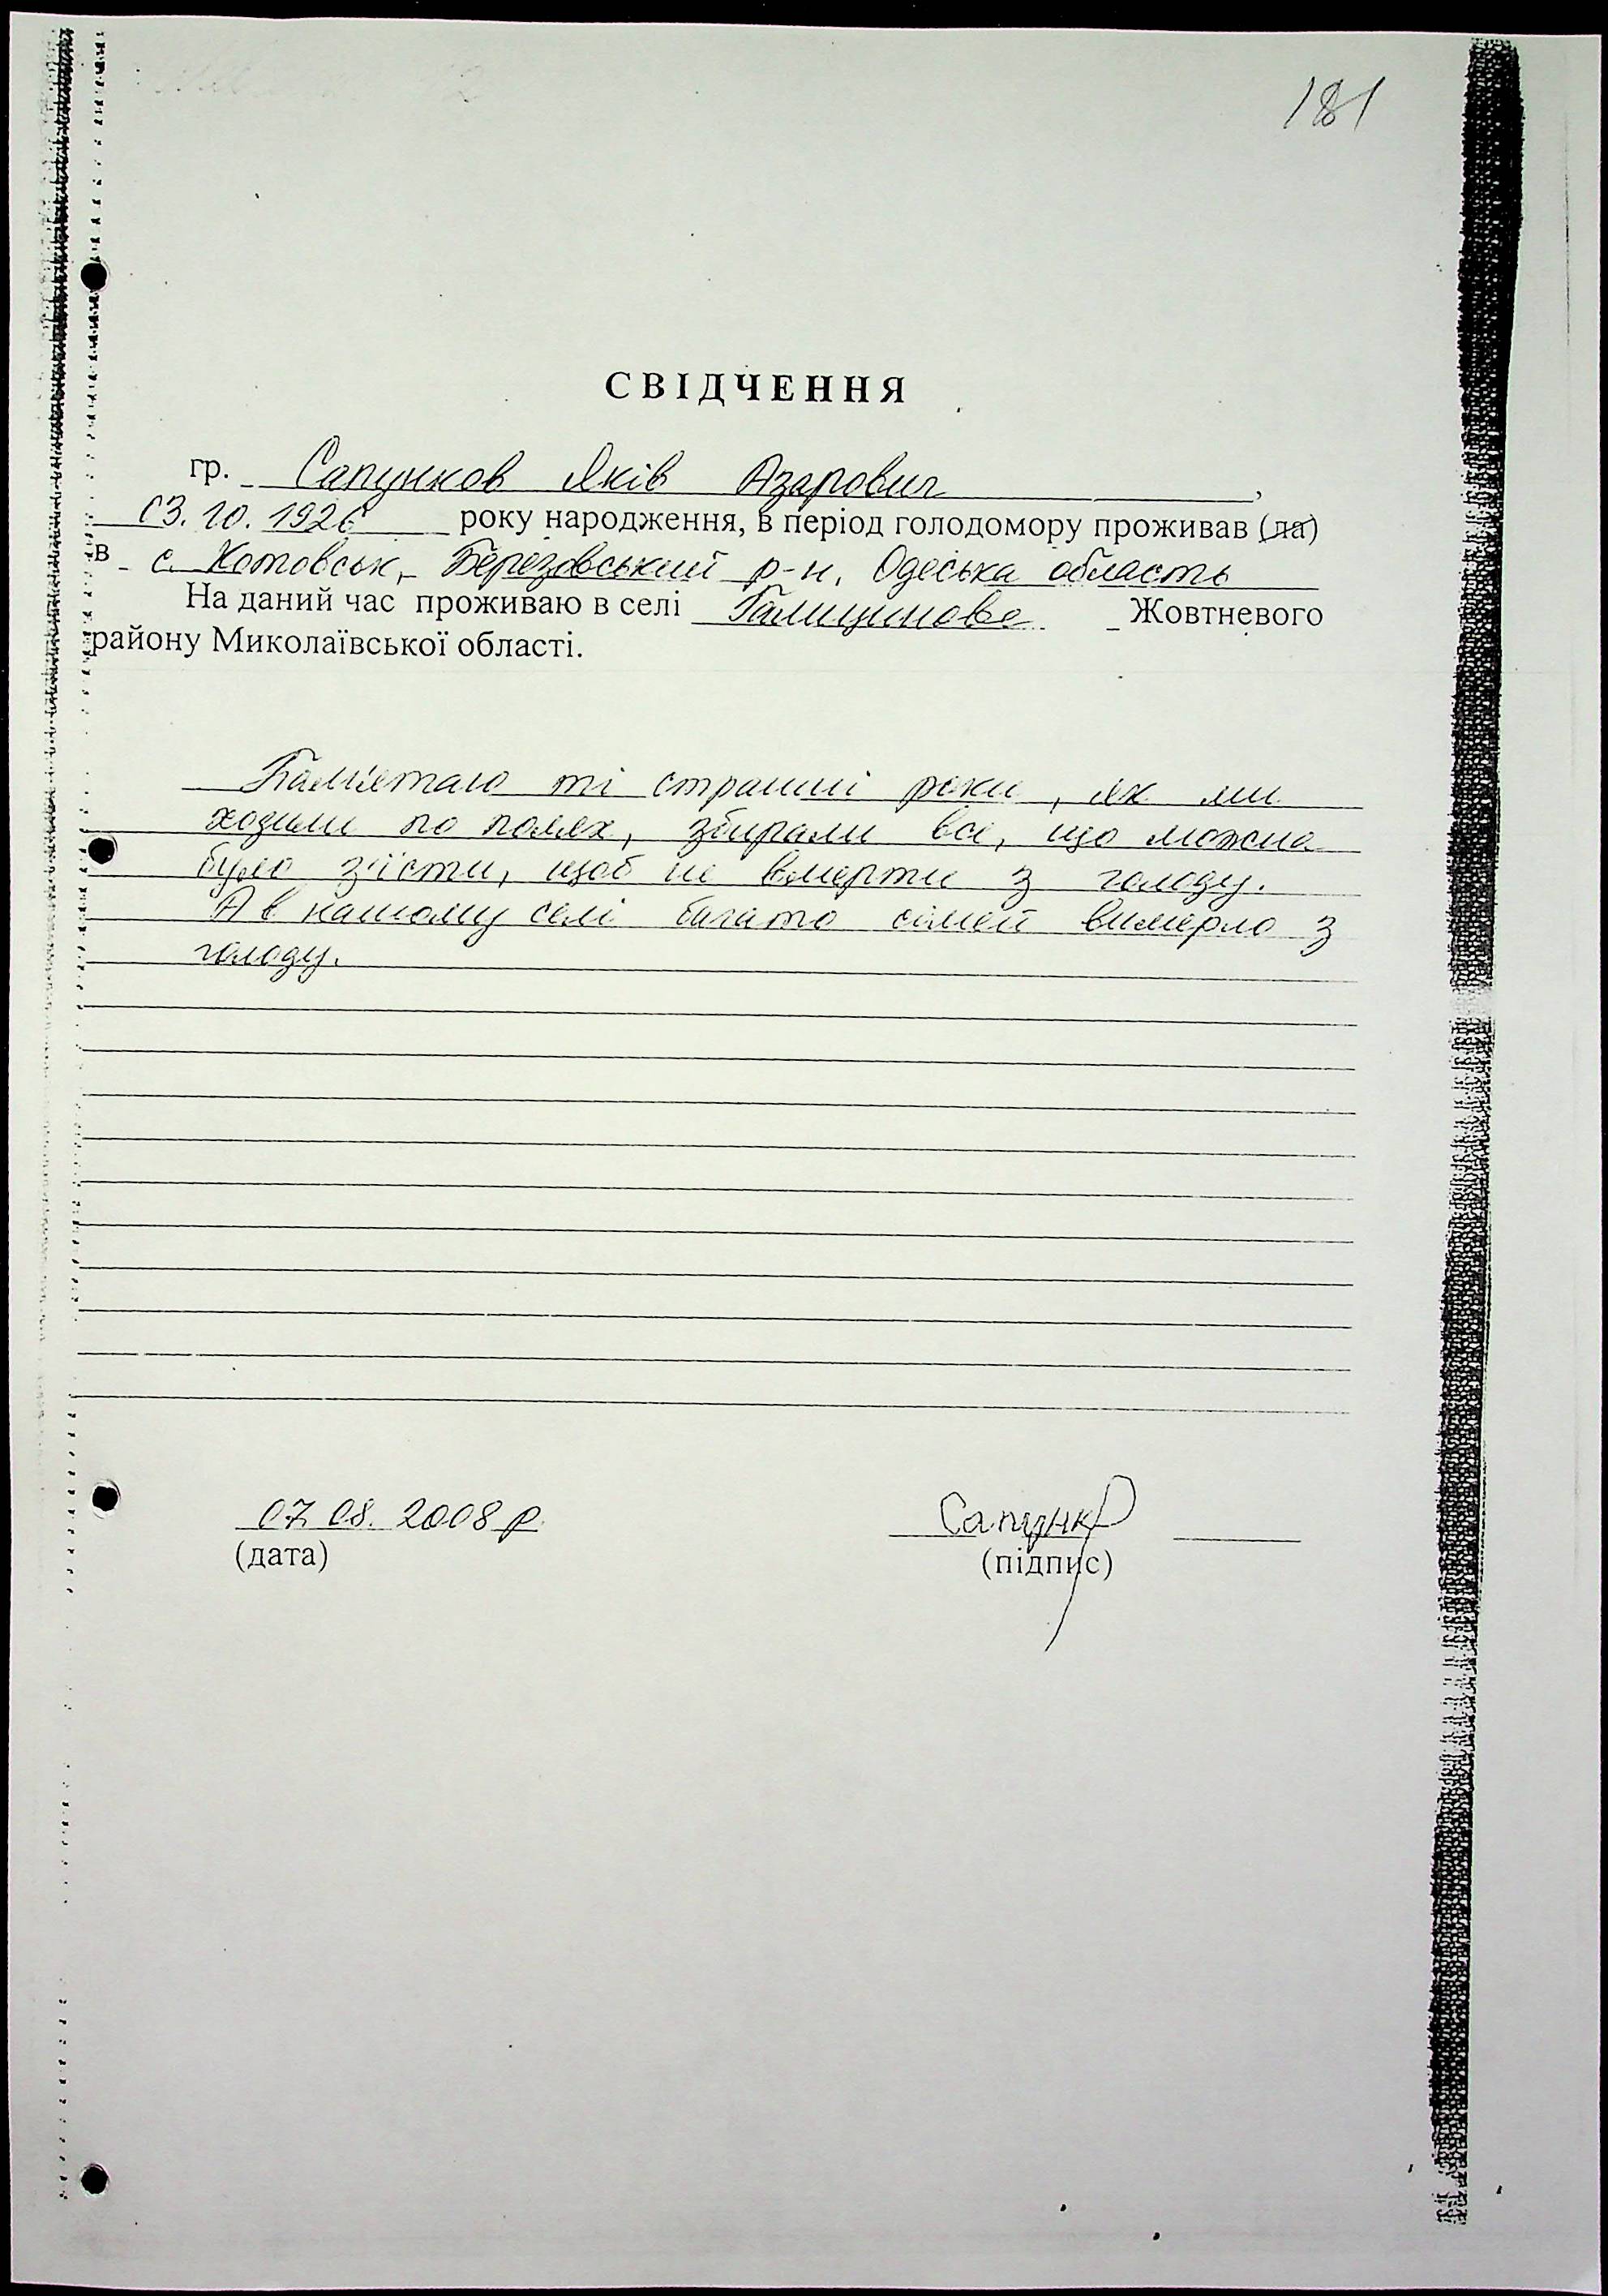 181
СВІДЧЕННЯ
гр. Сапунков Яків Азарович,
03.10.1926 року народження, в період голодомору проживав (ла)
в с. Котовськ, Березовський р-н, Одеська область
На даний час проживаю в селі Галицинове Жовтневого
району Миколаївської області.
Пам'ятаю ті страшні роки, як ми
ходили по полях, збирали все, що можна
було з'їсти, щоб не вмерти з голоду.
А в нашому селі багато сімей вимерло з
голоду.
07.08.2008 р. Сапунк
(дата) (підпис)